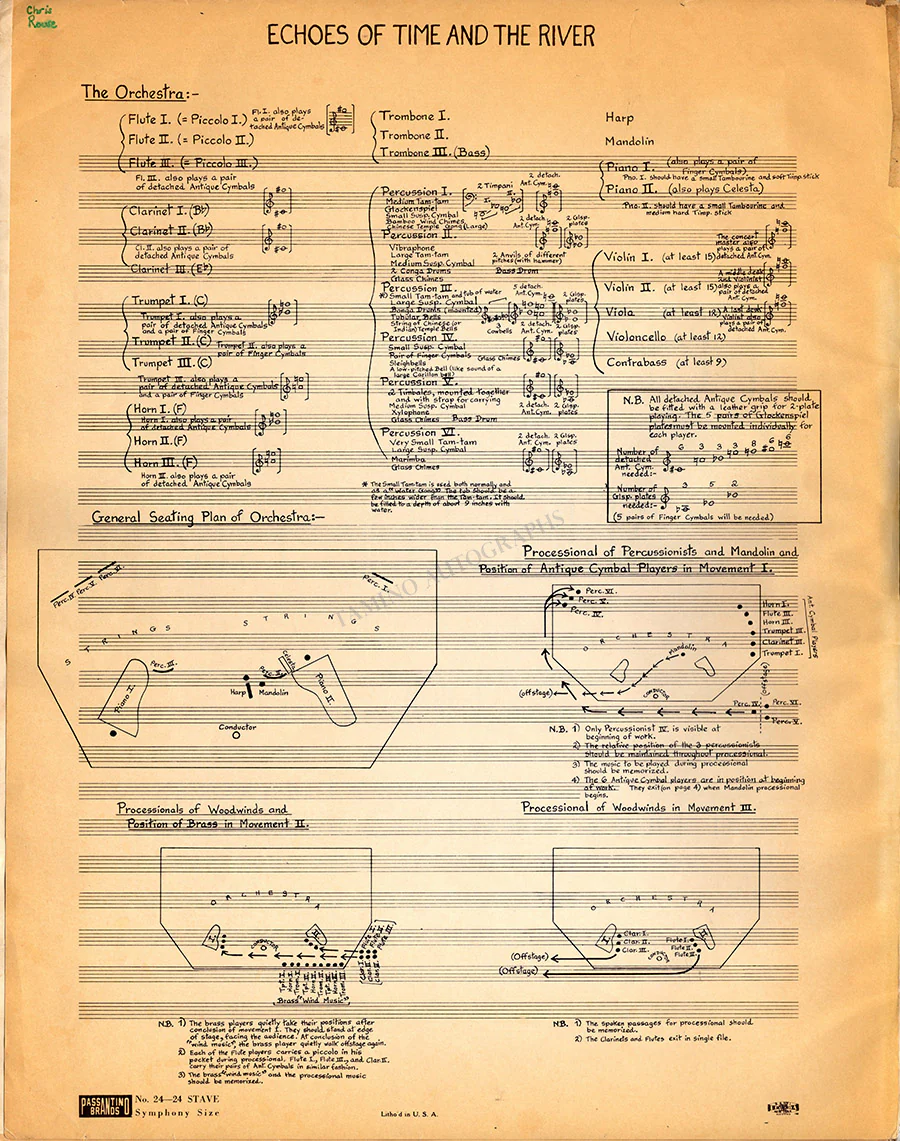 Chris
Rouse
ECHOES OF TIME AND THE RIVER
The Orchestra:-
Flute I. (= Piccolo I.)
Fl. I. also plays
a pair of de-
tached Antique Cymbals
Flute II. (= Piccolo II.)
Flute III. (= Piccolo III.)
Fl. III. also plays a pair
of detached Antique Cymbals
Clarinet I. (B♭)
Clarinet II. (B♭)
Cl. II. also plays a pair of
detached Antique Cymbals
Clarinet III. (E♭)
Trumpet I. (C)
Trumpet I. also plays a
pair of detached Antique Cymbals
and a pair of Finger Cymbals
Trumpet II. (C)
Trumpet II. also plays a
pair of Finger Cymbals
Trumpet III. (C)
Trumpet III. also plays a
pair of detached Antique Cymbals
and a pair of Finger Cymbals
Horn I. (F)
Horn I. also plays a pair
of detached Antique Cymbals
Horn II. (F)
Horn III. (F)
Horn III. also plays a pair
of detached Antique Cymbals
Trombone I.
Trombone II.
Trombone III. (Bass)
Percussion I.
2 Timpani
2 detach.
Ant. Cym.
Medium Tam-tam
Glockenspiel
Small Susp. Cymbal
Bamboo Wind Chimes
Chinese Temple Gong (Large)
Percussion II.
2 detach.
Ant. Cym.
2 Glsp.
plates
Vibraphone
Large Tam-tam
Medium Susp. Cymbal
2 Conga Drums
Glass Chimes
2 Anvils of different
pitches (with hammer)
Bass Drum
Percussion III.
*) Small Tam-tam and tub of water
Large Susp. Cymbal
Bongo Drums (mounted)
Tubular Bells
String of Chinese (or
Indian) Temple Bells
3
Cowbells
5 detach.
Ant. Cym.
2 Glsp.
plates
Percussion IV.
2 detach.
Ant. Cym.
2 Glsp.
plates
Small Susp. Cymbal
Pair of Finger Cymbals
Glass Chimes
Sleighbells
A low-pitched Bell (like sound of a
large Carillon bell)
Percussion V.
2 Timbales, mounted together
and with strap for carrying
Medium Susp. Cymbal
Xylophone
Glass Chimes
Bass Drum
2 detach.
Ant. Cym.
2 Glsp.
plates
Percussion VI.
2 detach.
Ant. Cym.
2 Glsp.
plates
Very Small Tam-tam
Large Susp. Cymbal
Marimba
Glass Chimes
* The Small Tam-tam is used both normally and
as a "Water Gong". The tub should be a
few inches wider than the Tam-tam. It should
be filled to a depth of about 9 inches with
water.
Harp
Mandolin
Piano I.
(also plays a pair of
Finger Cymbals)
Pno. I. should have a small Tambourine and soft Timp. stick
Piano II. (also plays Celesta)
Pno. II. should have a small Tambourine and
medium hard Timp. stick
Violin I. (at least 15)
The concert
master also
plays a pair of
detached Ant. Cym.
Violin II. (at least 15)
A middle desk
2nd Violinist
also plays a
pair of detached
Ant. Cym.
Viola (at least 12)
A last desk
Violist also
plays a pair of
detached Ant. Cym.
Violoncello (at least 12)
Contrabass (at least 9)
N.B. All detached Antique Cymbals should
be fitted with a leather grip for 2-plate
playing. The 5 pairs of Glockenspiel
plates must be mounted individually for
each player.
Number of
detached
Ant. Cym.
needed:-
6 3 3 3 8 6 6
Number of
Glsp. plates
needed:-
3 5 2
(5 pairs of Finger Cymbals will be needed)
General Seating Plan of Orchestra:-
Perc. IV.
Perc. V.
Perc. VI.
Perc. I.
STRINGS
STRINGS
Perc. III.
Celesta
Piano I.
Harp
Mandolin
Piano II.
Conductor
TAMINO AUTOGRAPHS
Processional of Percussionists and Mandolin and
Position of Antique Cymbal Players in Movement I.
Perc. VI.
Perc. V.
Perc. IV.
ORCHESTRA
Mandolin
Horn I.
Flute III.
Horn III.
Trumpet III.
Clarinet III.
Trumpet I.
Ant. Cymbal Players
(offstage)
CONDUCTOR
(offstage)
Perc. IV.
Perc. VI.
Perc. V.
N.B. 1) Only Percussionist IV. is visible at
beginning of work.
2) The relative position of the 3 percussionists
should be maintained throughout processional.
3) The music to be played during processional
should be memorized.
4) The 6 Antique Cymbal players are in position at beginning
of work. They exit (on page 4) when Mandolin processional
begins.
Processionals of Woodwinds and
Position of Brass in Movement II.
ORCHESTRA
I.
II.
CONDUCTOR
Flute I.
Flute II.
Flute III.
Clar. I.
Clar. II.
Clar. III.
Tpt. I.
Horn I.
Trom. I.
Tpt. II.
Horn II.
Trom. II.
Tpt. III.
Horn III.
Trom. III.
Brass "Wind Music"
N.B. 1) The brass players quietly take their positions after
conclusion of movement I. They should stand at edge
of stage, facing the audience. At conclusion of the
"wind music", the brass player quietly walk offstage again.
2) Each of the Flute players carries a piccolo in his
pocket during processional. Flute I., Flute III., and Clar. II.
carry their pairs of Ant. Cymbals in similar fashion.
3) The brass "wind music" and the processional music
should be memorized.
Processional of Woodwinds in Movement III.
ORCHESTRA
I.
II.
Clar. I.
Clar. II.
Clar. III.
Flute I.
Flute II.
Flute III.
CONDUCTOR
(Offstage)
(Offstage)
N.B. 1) The spoken passages for processional should
be memorized.
2) The Clarinets and Flutes exit in single file.
PASSANTINO
BRANDS
No. 24—24 STAVE
Symphony Size
Litho'd in U. S. A.